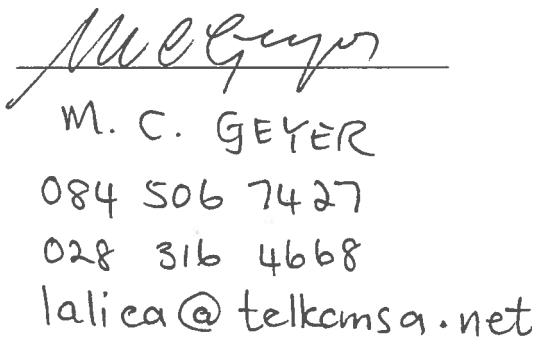 MCGeyer
M. C. GEYER
084 506 7427
028 316 4668
lalica@telkomsa.net